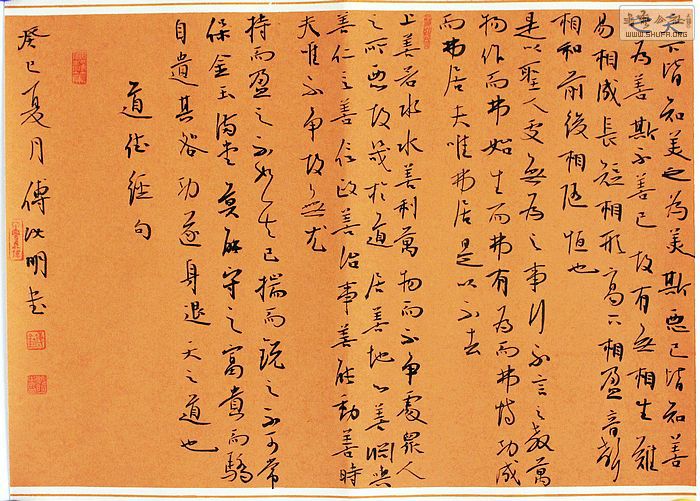 天下皆知美之為美斯惡已皆知善
之為善斯不善已故有無相生難
易相成長短相形高下相盈音聲
相和前後相隨恒也
是以聖人處無為之事行不言之教萬
物作而弗始生而弗有為而弗恃功成
而弗居夫唯弗居是以不去
上善若水水善利萬物而不爭處眾人
之所惡故幾於道居善地心善淵與
善仁言善信政善治事善能動善時
夫唯不爭故無尤
持而盈之不如其已揣而銳之不可常
保金玉滿堂莫能守之富貴而驕
自遺其咎功遂身退天之道也
道德經句
癸巳夏月傅汝明書
WWW.SHUFA.ORG